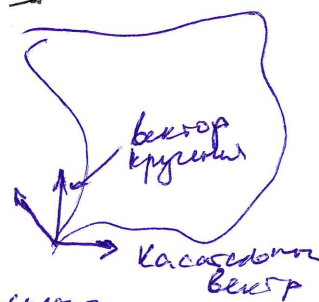 вектор
кручения
касательны
вектр